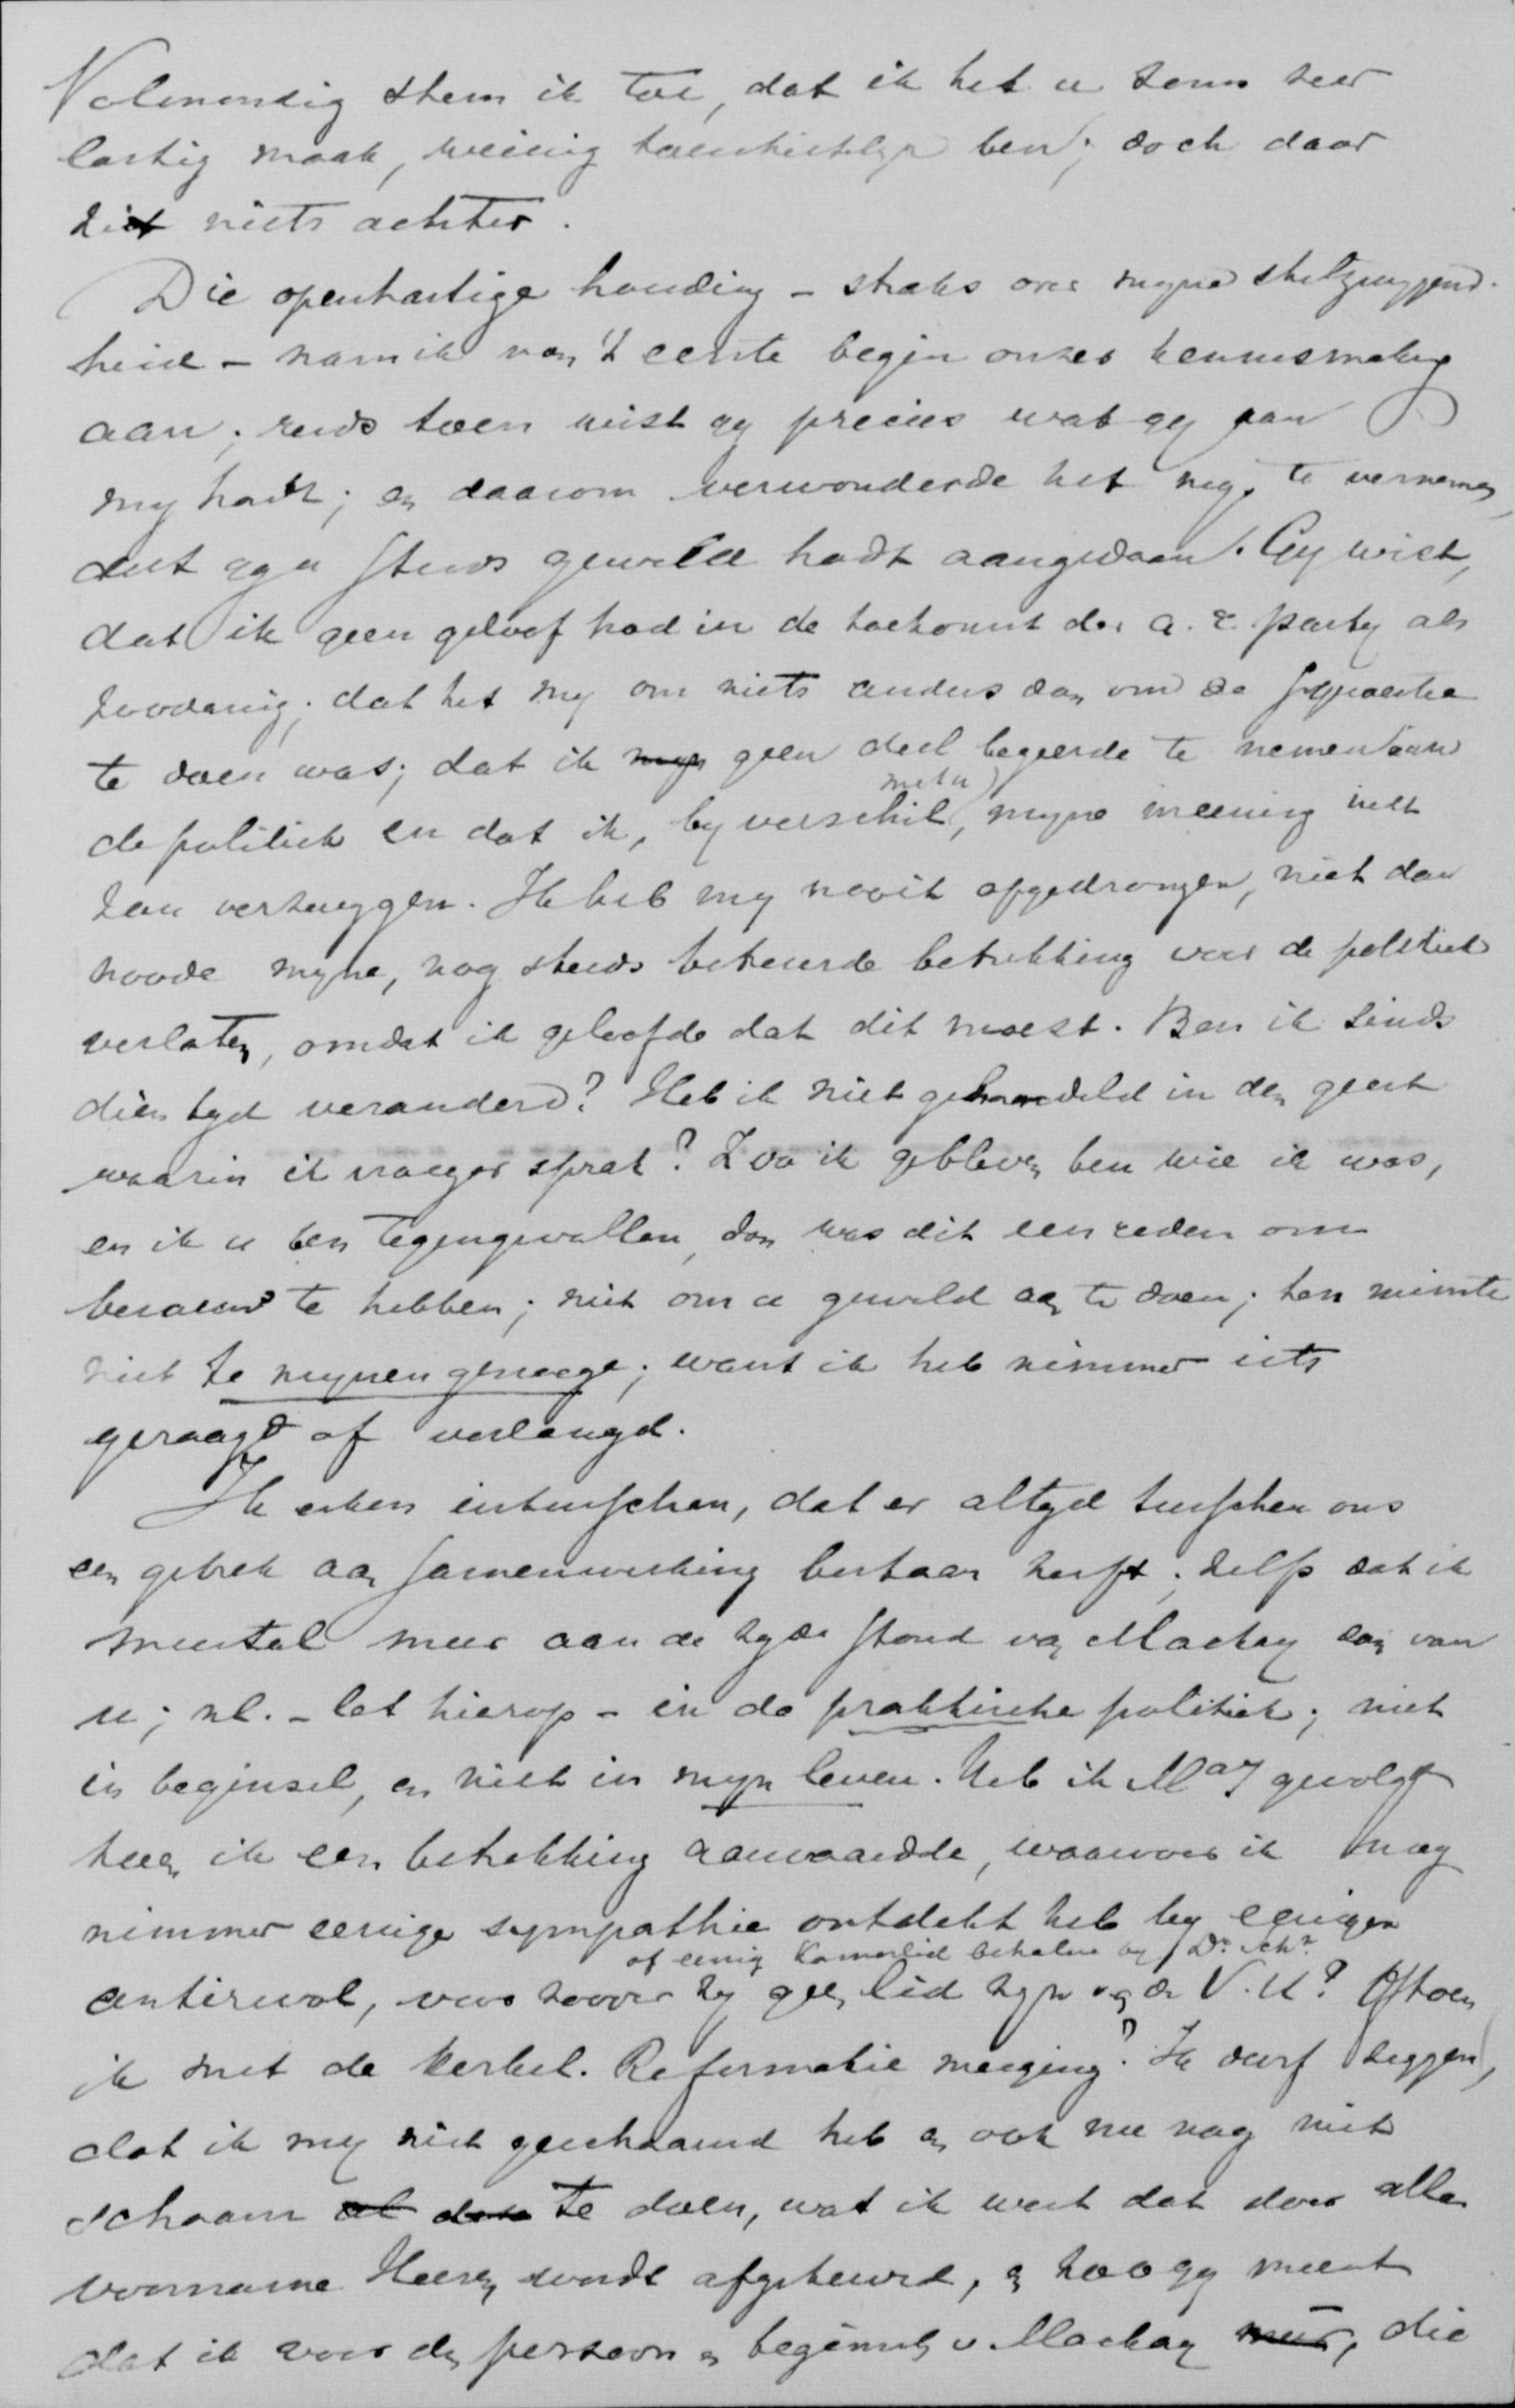 Volmondig stem ik toe, dat ik het u soms zeer
lastig maak, weinig toeschietelijk ben; doch daar
zit niets achter.
Die openhartige houding – straks over mijne stilzwijgend-
heid – nam ik van 't eerste begin onzer kennismaking
aan; reeds toen wist gij precies wat gij aan
mij hadt; en daarom verwonderde het mij, te vernemen,
dat gij u steeds geweld hadt aangedaan. Gij wist,
dat ik geen geloof had in de toekomst der a. r. partij als
zoodanig; dat het mij om niets anders dan om de
te doen was; dat ik geen deel begeerde te nemen aan
de politiek en dat ik, bij verschil met u, mijne meening niet
zou verzwijgen. Ik heb mij nooit opgedrongen, niet dan
noode mijne, nog steeds betreurde betrekking voor de politiek
verlaten, omdat ik geloofde dat dit moest. Ben ik sinds
dien tijd veranderd? Heb ik niet gehandeld in den geest
waarin ik vroeger sprak? Zoo ik gebleven ben wie ik was,
en ik u ben tegengevallen, dan was dit een reden om
berouw te hebben; niet om u geweld aan te doen; ten minste
niet te mijnen genoege; want ik heb nimmer iets
gevraagd of verlangd.
Ik erken intusschen, dat er altijd tusschen ons
een gebrek aan samenwerking bestaan heeft; zelfs dat ik
meestal meer aan de zijde stond van Mackay dan van
u; nl. – let hierop – in de praktische politiek; niet
in beginsel, en niet in mijn leven. Heb ik May gevolgd
toen ik een betrekking aanvaardde, waarvoor ik nog
nimmer eenige sympathie ontdekt heb bij eenigen
of eenig Kamerlid behalve bij Dr. Schr.
antirevol, voor zoover zij geen lid zijn van de V. U? Of toen
ik met de Kerkel. Reformatie meeging? Ik durf zeggen,
dat ik mij niet geschaamd heb en ook nu nog niet
schaam te doen, wat ik weet dat door alle
voorname Heeren wordt afgekeurd, en zoo gij meent
dat ik voor den persoon en beginsel v. Mackay meer, die